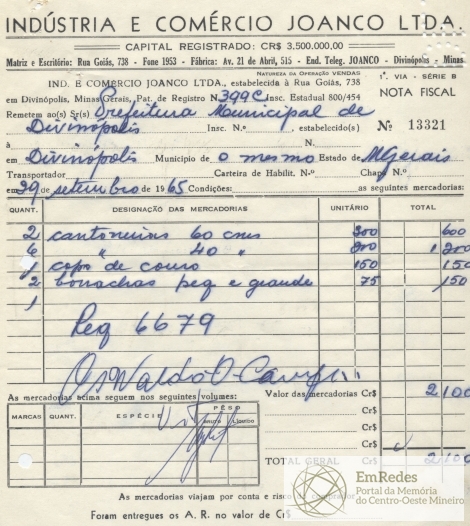 INDÚSTRIA E COMÉRCIO JOANCO LTDA.
CAPITAL REGISTRADO: CR$ 3.500.000,00
Matriz e Escritório: Rua Goiás, 738 - Fone 1953 - Fábrica: Av. 21 de Abril, 515 - End. Teleg. JOANCO - Divinópolis - Minas
NATUREZA DA OPERAÇÃO VENDAS
1.ª VIA - SÉRIE B
IND. E COMÉRCIO JOANCO LTDA., estabelecida à Rua Goiás, 738
NOTA FISCAL
em Divinópolis, Minas Gerais, Pat. de Registro N 399C Insc. Estadual 800/454
Remetem ao(s) Sr(s) Prefeitura Municipal de
Divinópolis Insc. N.º estabelecido(s)
Nº 13321
à
em Divinópolis Município de o mesmo Estado de M Gerais
Transportador Carteira de Habilit. N.º Chapa N.º
em 29 de setembro de 1965 Condições: as seguintes mercadorias:
QUANT. DESIGNAÇÃO DAS MERCADORIAS UNITÁRIO TOTAL
2 cantoneiras 60 cms 300 600
6 " 40 " 200 1.200
1 copo de couro 150 150
2 borrachas peq e grande 75 150
1
Req 6679
Oswaldo
As mercadorias acima seguem nos seguintes volumes:
Valor das mercadorias Cr$ 2100
MARCAS QUANT. ESPÉCIE PÊSO
BRUTO LÍQUIDO
Cr$
Cr$
Cr$
TOTAL GERAL Cr$ 2100
EmRedes
Portal da Memória
do Centro-Oeste Mineiro
As mercadorias viajam por conta e risco do comprador
Foram entregues os A. R. no valor de Cr$